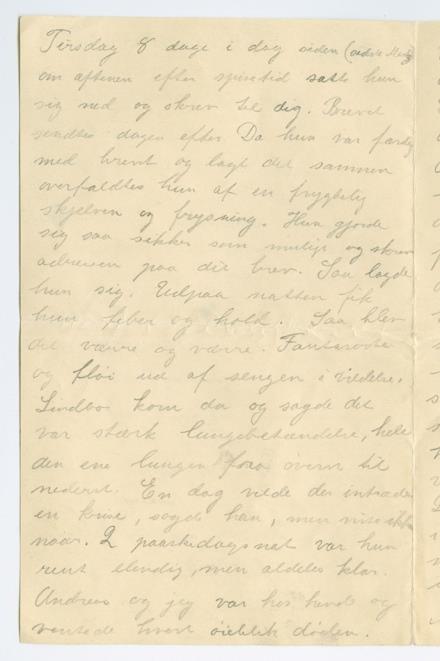 Tirsdag 8 dage i dag siden (sidste
om aftenen efter spisetid satte hun
sig ned og skrev til dig. Brevet
sendtes dagen efter Da hun var færdig
med brevet og lagt det sammen
overfaldtes hun af en frygtelig
skjelven og frysning. Hun gjorde
sig saa sikker som mulig og skrev
adressen paa dit brev. Saa lagde
hun sig. Udpaa natten fik
hun feber og hold. Saa blev
det værre og værre. Fantaserte
og fløi ud af sengen i vildelse.
Lindboe kom da og sagde det
var stærk lungebetændelse, hele
den ene lungen fraa øverst til
nederst. En dag vilde der intræde
en krise, sagde han, men visse ikke
naar. 2 paaskedags nat var hun
rent elendig, men aldeles klar.
Andreas og jeg var hos hende og
ventede hvert øieblik døden.